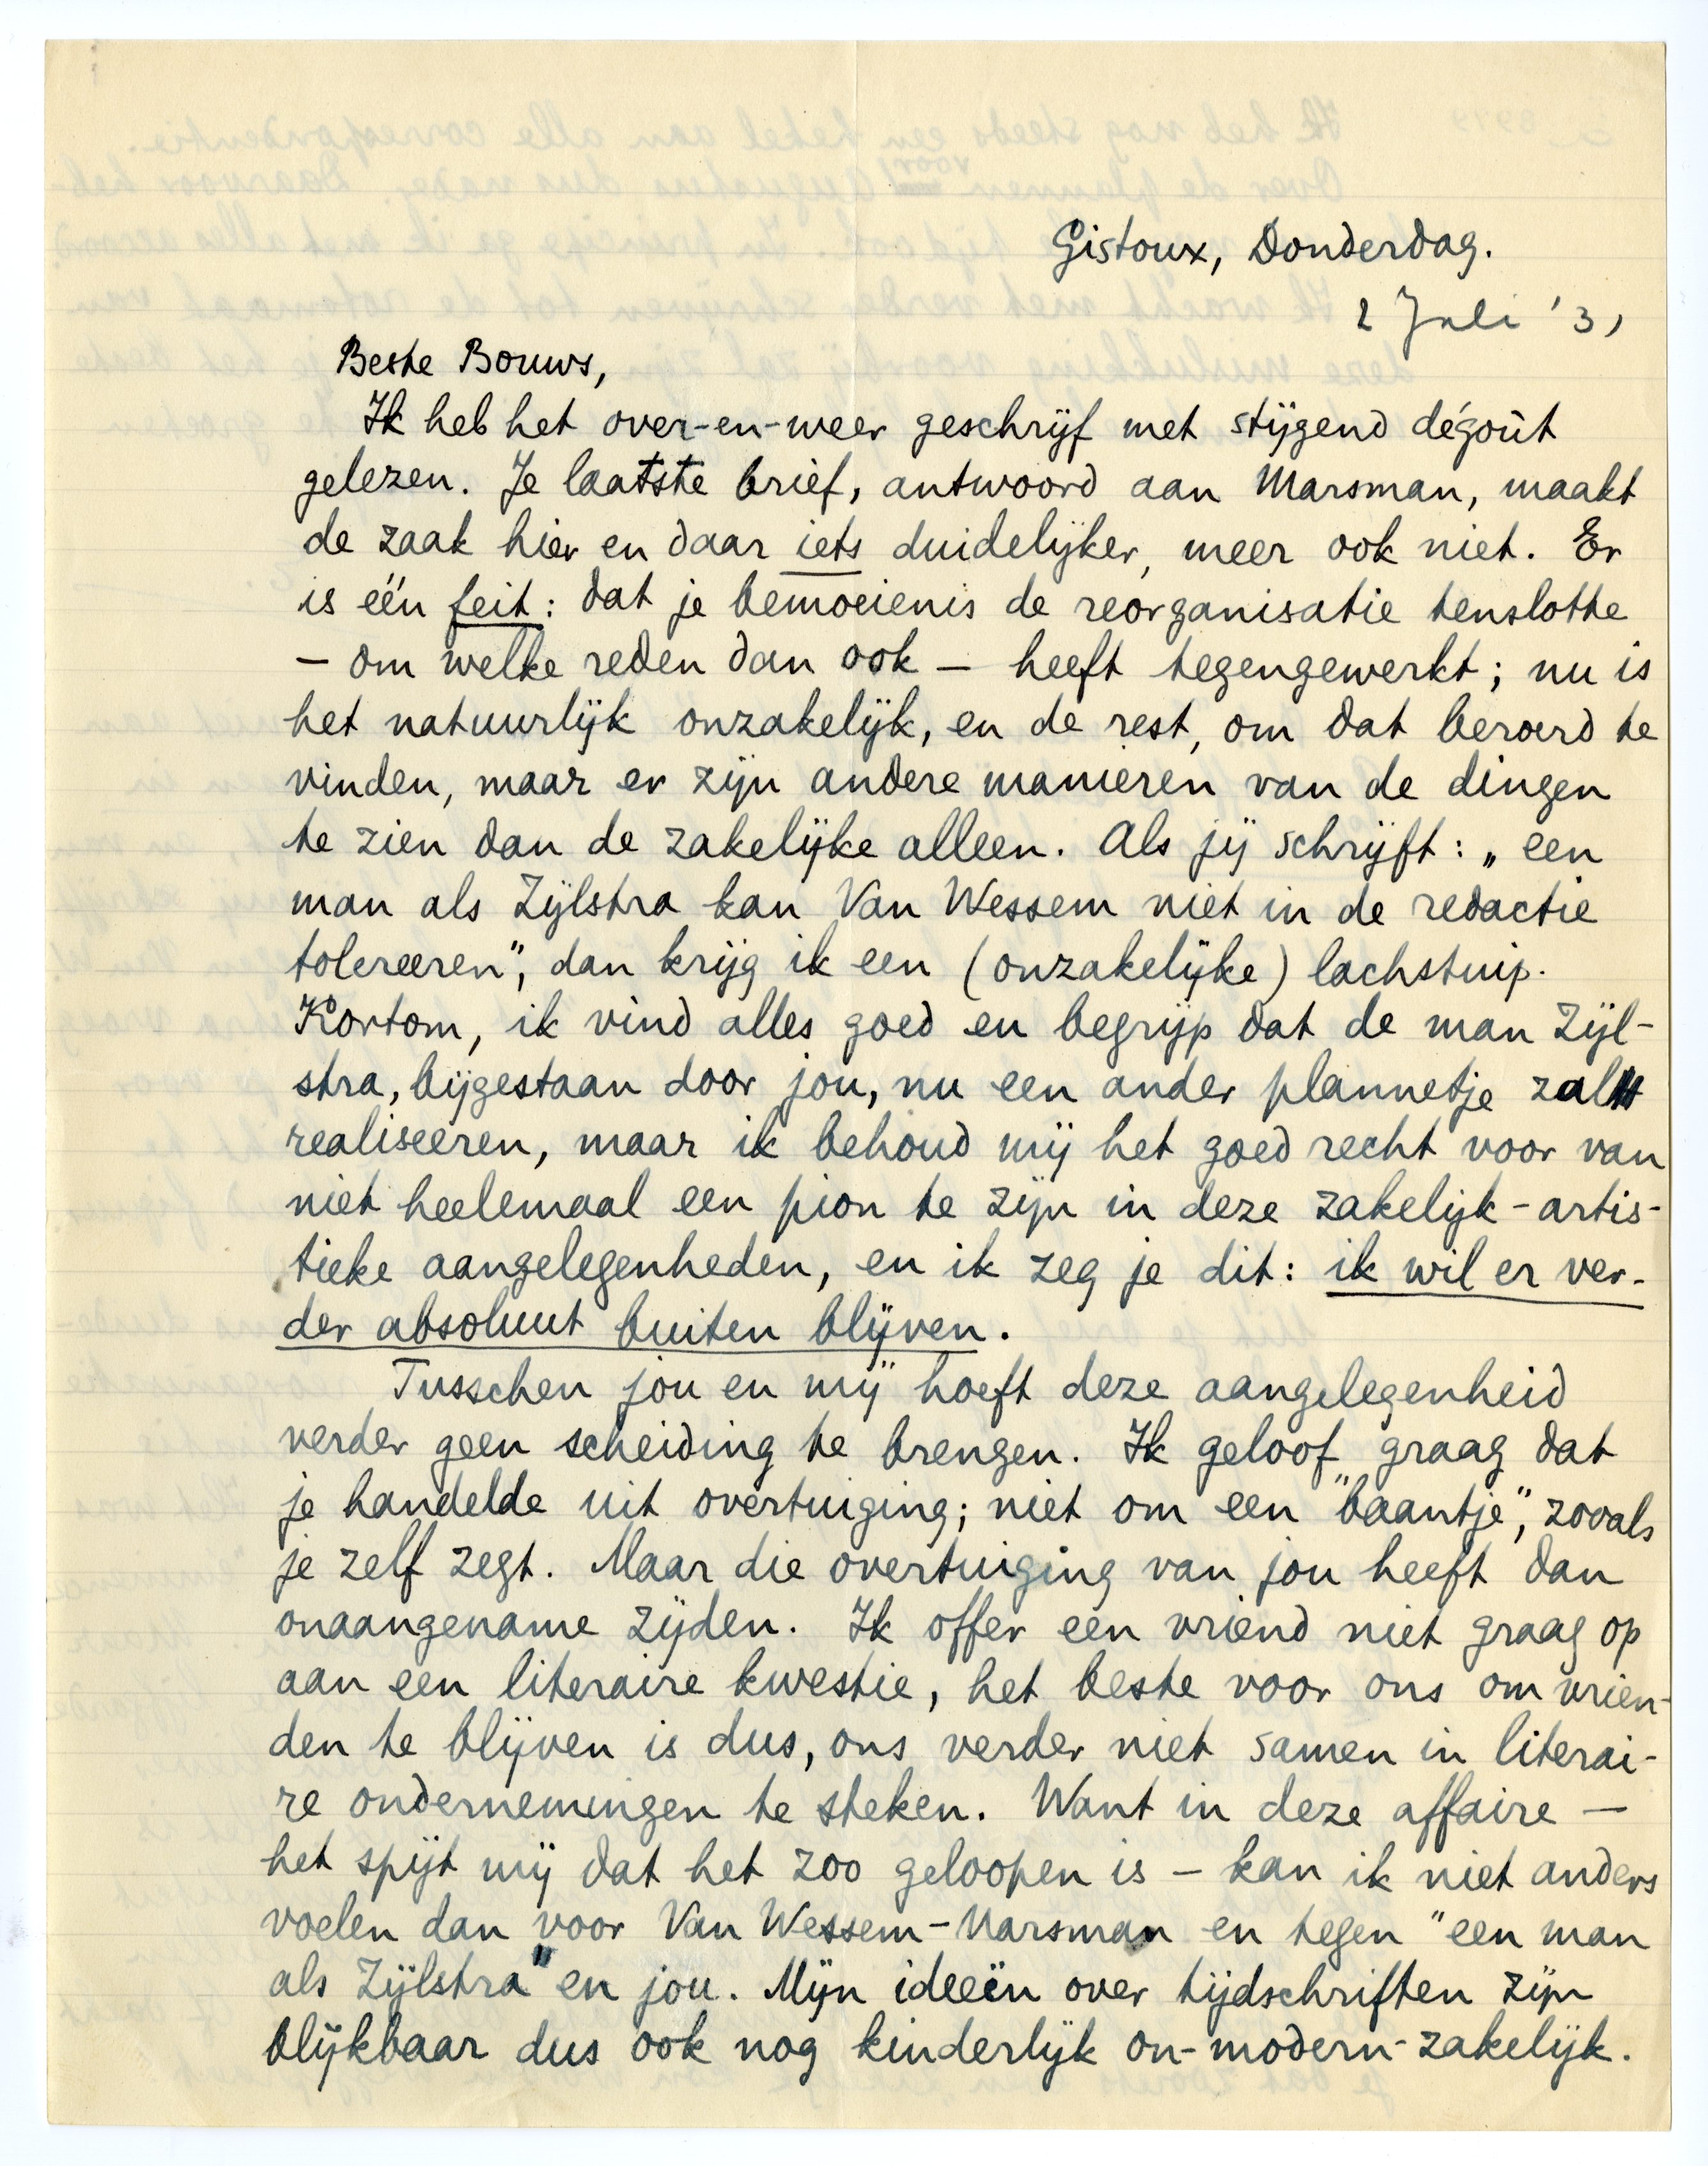 Gistoux, Donderdag.
2 Juli '31
Beste Bouws,
Ik heb het over-en-weer geschrijf met stijgend dégoût
gelezen. Je laatste brief, antwoord aan Marsman, maakt
de zaak hier en daar iets duidelijker, meer ook niet. Er
is één feit: dat je bemoeienis de reorganisatie tenslotte
— om welke reden dan ook — heeft tegengewerkt; nu is
het natuurlijk onzakelijk, en de rest, om dat beroerd te
vinden, maar er zijn andere manieren van de dingen
te zien dan de zakelijke alleen. Als jij schrijft: „een
man als Zijlstra kan Van Wessem niet in de redactie
tolereeren", dan krijg ik een (onzakelijke) lachstuip.
Kortom, ik vind alles goed en begrijp dat de man Zijl-
stra, bijgestaan door jou, nu een ander plannetje zal
realiseeren, maar ik behoud mij het goed recht voor van
niet heelemaal een pion te zijn in deze zakelijk-artis-
tieke aangelegenheden, en ik zeg je dit: ik wil er ver-
der absoluut buiten blijven.
Tusschen jou en mij hoeft deze aangelegenheid
verder geen scheiding te brengen. Ik geloof graag dat
je handelde uit overtuiging; niet om een "baantje", zooals
je zelf zegt. Maar die overtuiging van jou heeft dan
onaangename zijden. Ik offer een vriend niet graag op
aan een literaire kwestie, het beste voor ons om vrien-
den te blijven is dus, ons verder niet samen in literai-
re ondernemingen te steken. Want in deze affaire —
het spijt mij dat het zoo geloopen is — kan ik niet anders
voelen dan voor Van Wessem-Marsman en tegen "een man
als Zijlstra" en jou. Mijn ideeën over tijdschriften zijn
blijkbaar dus ook nog kinderlijk on-modern-zakelijk.